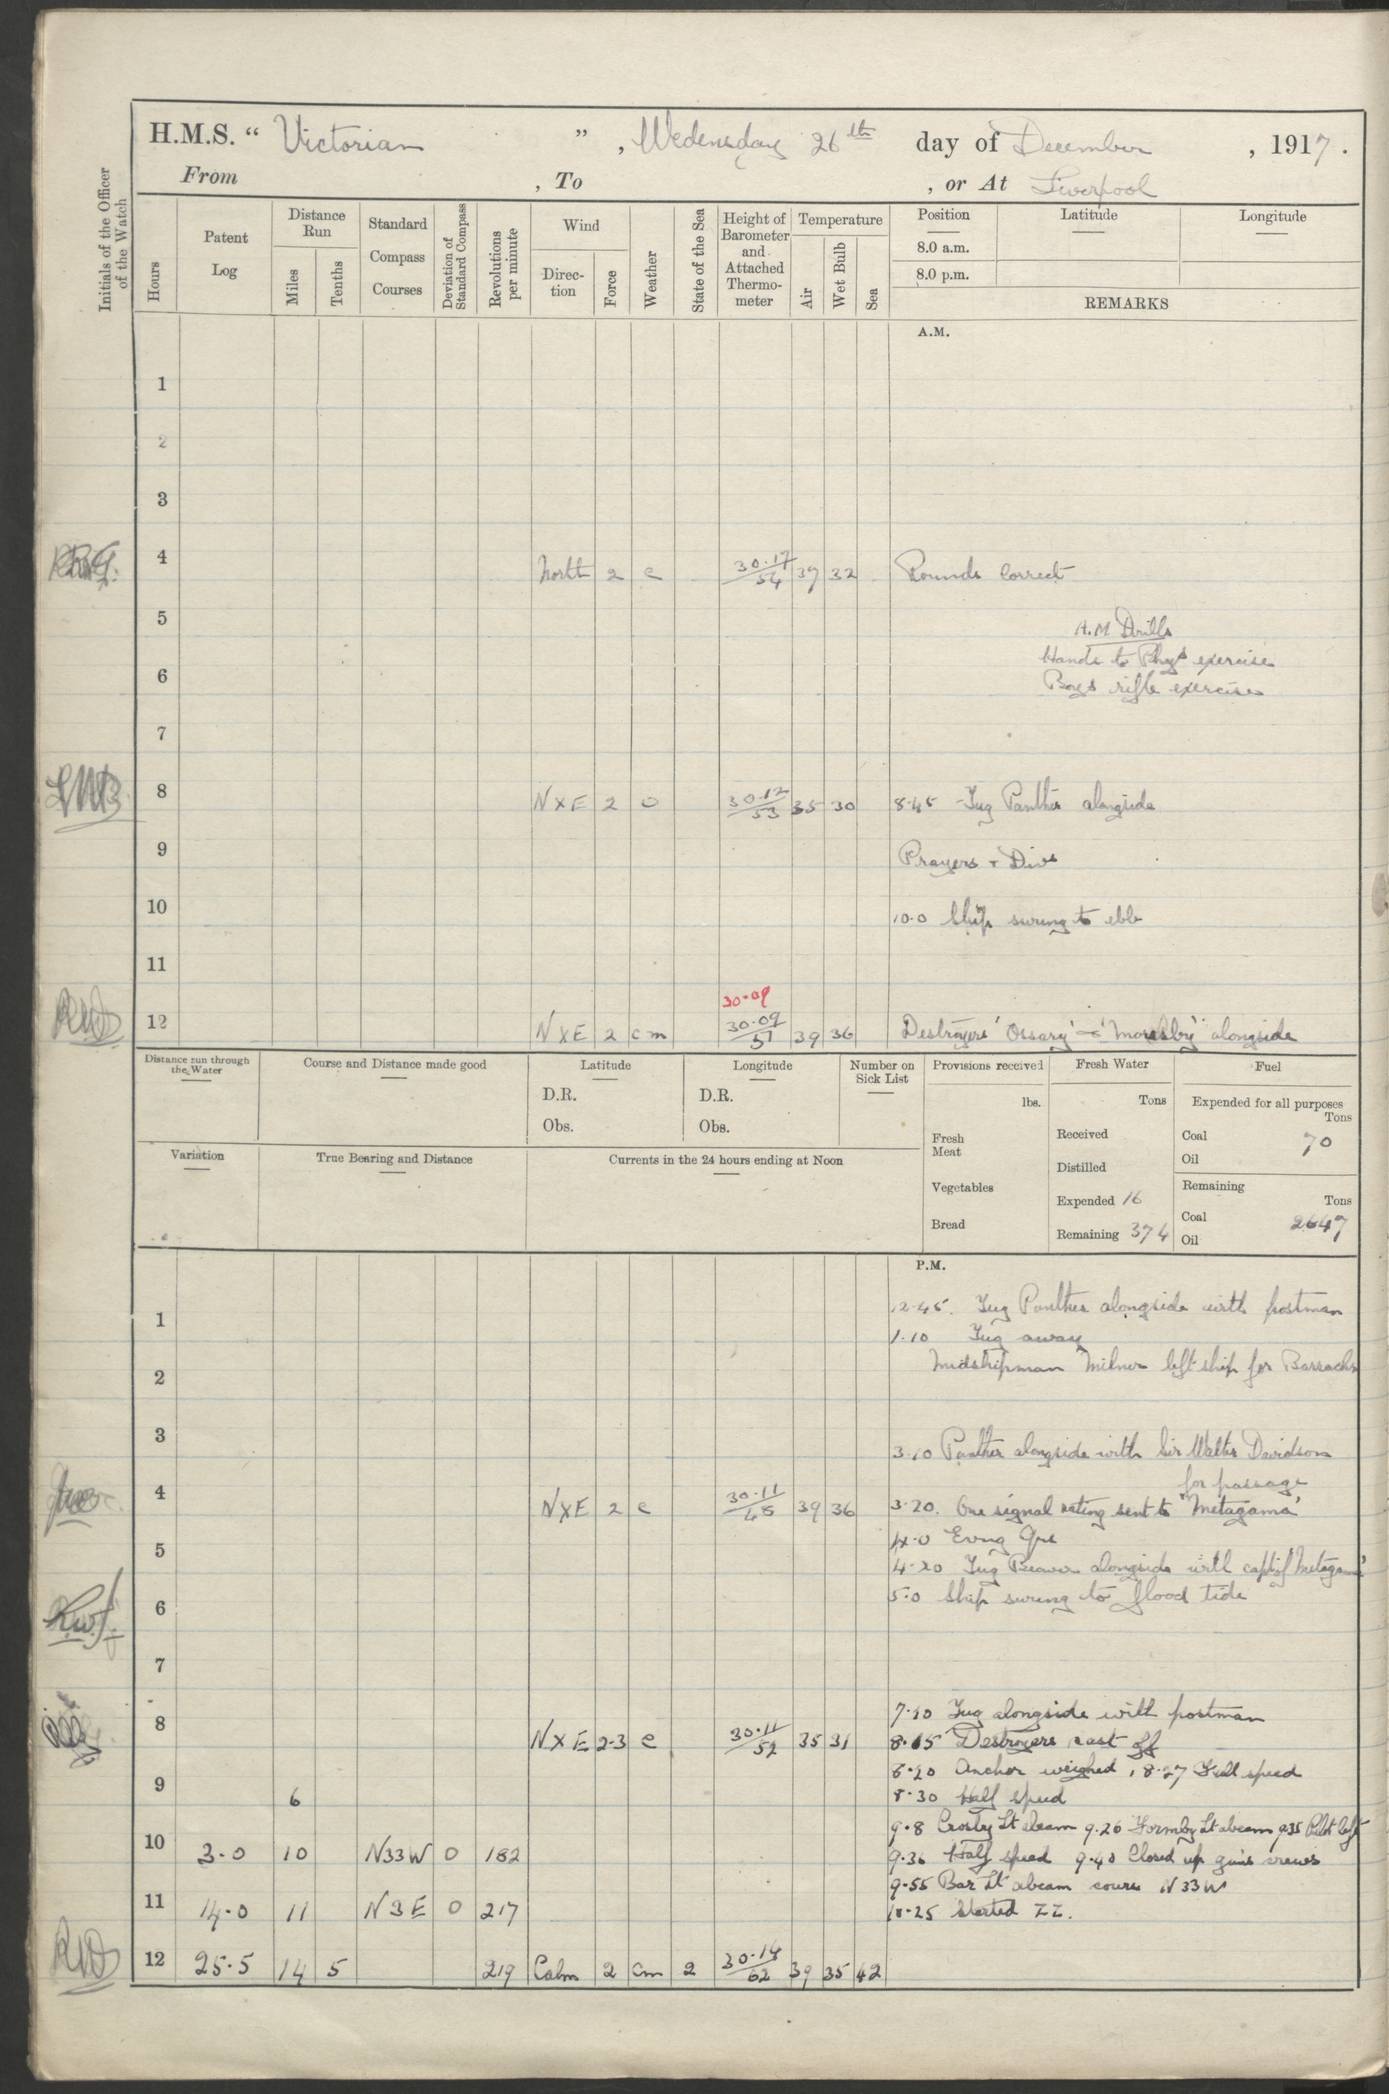 H.M.S. “ Victorian ”, Wedensday 26th day of December, 1917.
From , To , or At Liverpool
Initials of the Officer of the Watch
Hours
Patent Log
Distance Run
Miles
Tenths
Standard Compass Courses
Deviation of Standard Compass
Revolutions per minute
Wind
Direc-tion
Force
Weather
State of the Sea
Height of Barometer and Attached Thermo-meter
Temperature
Air
Wet Bulb
Sea
Position Latitude Longitude
8.0 a.m.
8.0 p.m.
REMARKS
A.M.
1
2
3
4 North 2 c 30.17/54 39 32 Rounds Correct
5 A.M Drills
Hands to Phys exercise
6 Boys rifle exercises
7
8 N x E 2 o 30.12/53 35 30 8.45 Tug Panther alongside
9 Prayers + Divs
10 10.0 Ship swung to ebb
11
30.09
12 N x E 2 cm 30.09/51 39 36 Destroyers 'Ossary' & 'Moresby' alongside
Distance run through the Water
Course and Distance made good
Latitude
D.R.
Obs.
Longitude
D.R.
Obs.
Number on Sick List
Provisions received
lbs.
Fresh Meat
Vegetables
Bread
Fresh Water
Tons
Received
Distilled
Expended 16
Remaining 374
Fuel
Expended for all purposes
Tons
Coal 70
Oil
Remaining
Tons
Coal 2647
Oil
Variation
True Bearing and Distance
Currents in the 24 hours ending at Noon
P.M.
12.45. Tug Panther alongside with postman
1 1.10 Tug away
2 Midshipman Milner left ship for Barracks
3 3.10 Panther alongside with Sir Walter Davidson
for passage
4 N x E 2 c 30.11/48 39 36 3.20. One signal rating sent to "Metagama'
4.0 Evng Qrs
5 4.20 Tug Beaver alongside with capt of Metagama'
6 5.0 Ship swung to flood tide
7
7.10 Tug alongside with postman
8 N x E 2-3 c 30.11/52 35 31 8.15 Destroyers cast off
8.20 Anchor weighed, 8.27 Full speed
9 6 8.30 Half speed
9.8 Crosby Lt abeam 9.20 Formby Lt abeam 9.35 Pilot left
10 3.0 10 N33W 0 182 9.36 Half speed 9.40 Closed up guns crews
9.55 Bar Lt abeam course N33W
11 14.0 11 N3E 0 217 10.25 Started ZZ.
12 25.5 14 5 219 Calm 2 cm 2 30.14/62 39 35 42